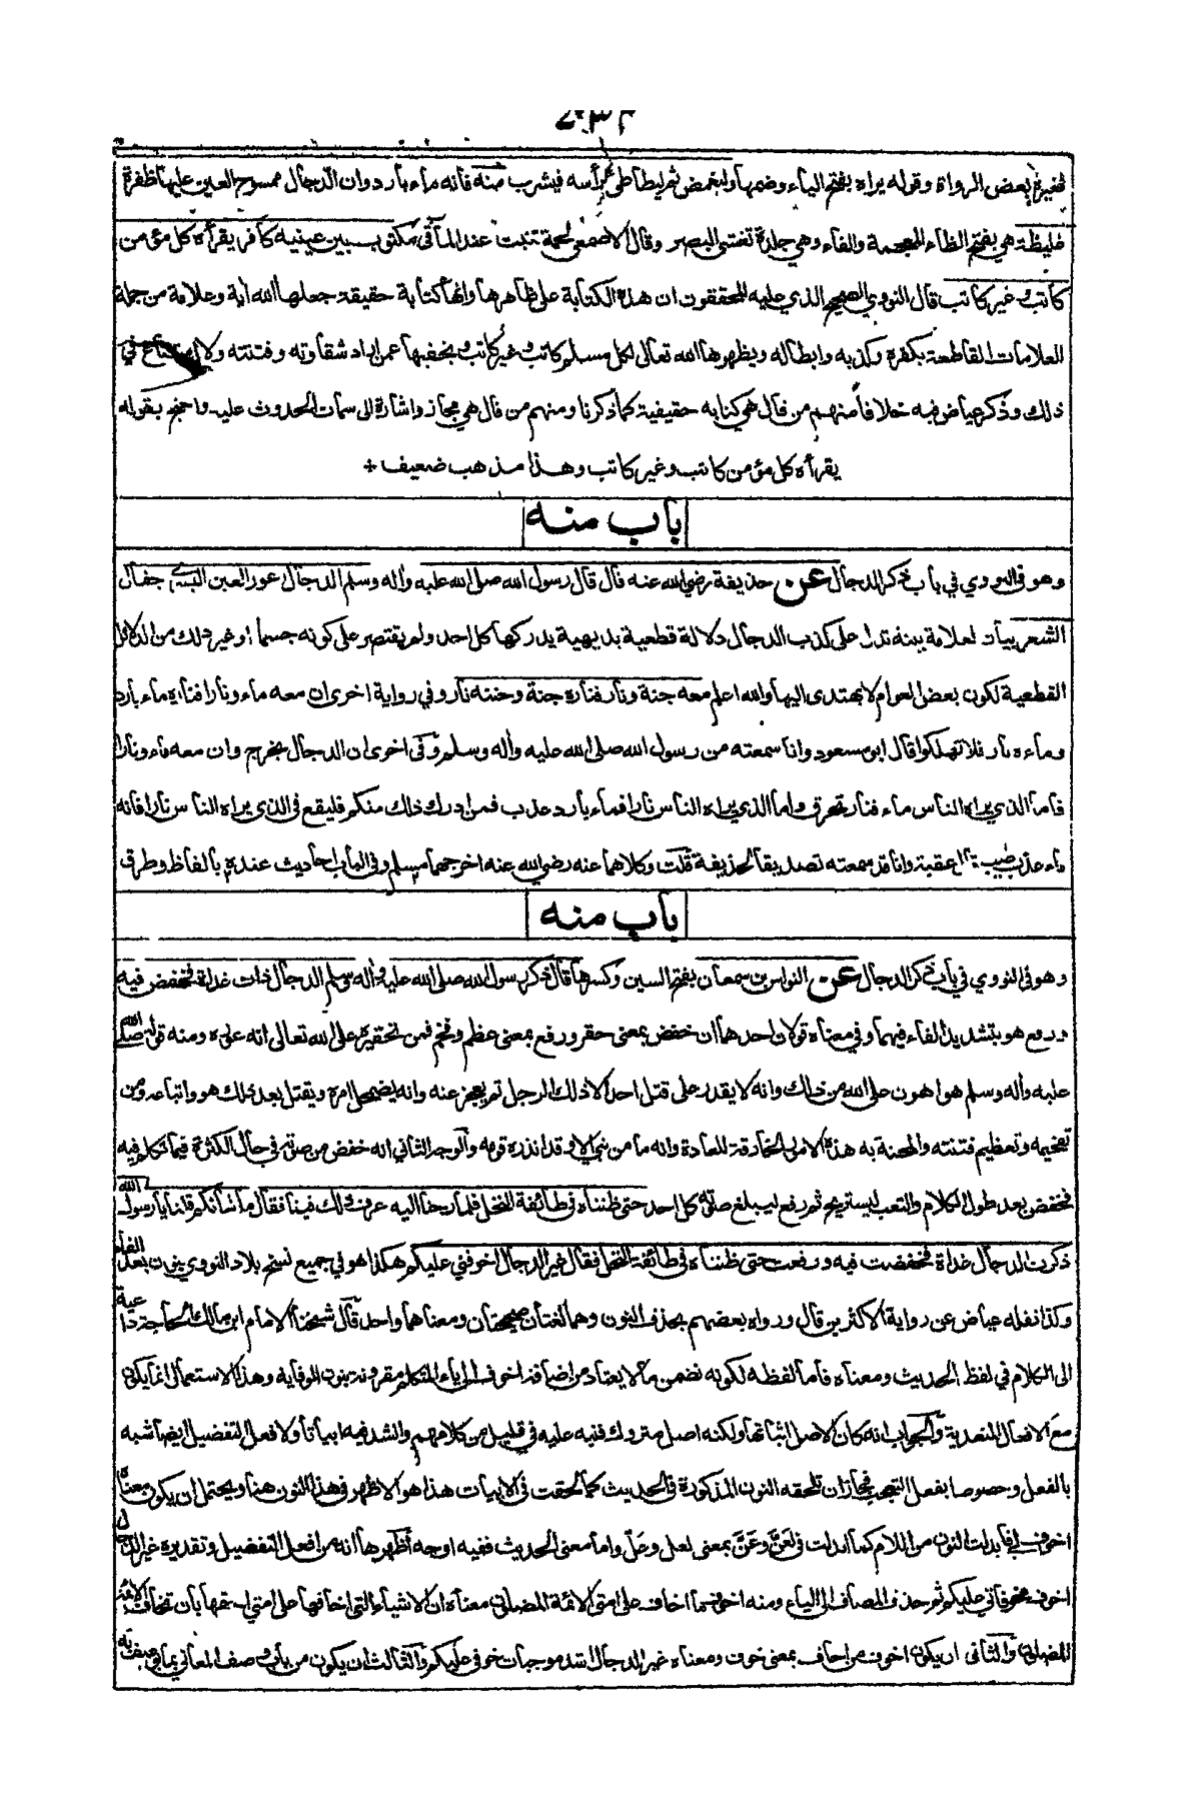 فغيره بعض الرواة وقوله يراه بفتح الياء وضمها وليغمض ثم ليطأطئ رأسه فيشرب منه فانه ماء بارد وان الدجال ممسوح العين عليها ظفرة
غليظة هي بفتح الظاء المعجمة والفاء وهي جلدة تغشى البصر وقال الاصمعي لحمة تنبت عند المآقي مكتوب بين عينيه كافر يقرأه كل مؤمن
كاتب وغير كاتب قال النووي الصحيح الذي عليه المحققون ان هذه الكتابة على ظاهرها وانها كتابة حقيقة جعلها الله آية وعلامة من جملة
العلامات القاطعة بكفره وكذبه وابطاله ويظهرها الله تعالى لكل مسلم كاتب وغير كاتب ويخفيها عمن اراد شقاوته وفتنته ولا امتناع في
ذلك وذكر عياض فيه خلافا منهم من قال هي كتابه حقيقية كما ذكرنا ومنهم من قال هي مجاز واشارة الى سمات الحدوث عليه واحتج بقوله
يقرأه كل مؤمن كاتب وغير كاتب وهذا مذهب ضعيف +
باب منه
وهو في النووي في باب ذكر الدجال عن حذيفة رضي الله عنه قال قال رسول الله صلى الله عليه وآله وسلم الدجال عور العين اليسرى جفال
الشعر بيان لعلامة بينة تدل على كذب الدجال دلالة قطعية بديهية يدركها كل احد ولم يقتصر على كونه جسما او غير ذلك من الدلائل
القطعية لكون بعض العوام لا يهتدى اليها والله اعلم معه جنة ونار فناره جنة وجنته نار وفي رواية اخرى ان معه ماء ونارا فناره ماء بارد
وماءه نار فلا تهلكوا قال ابو مسعود وانا سمعته من رسول الله صلى الله عليه وآله وسلم وفي اخرى ان الدجال يخرج وان معه ماء ونارا
فاما الذي يراه الناس ماء فنار تحرق واما الذي يراه الناس نارا فماء بارد عذب فمن ادرك ذلك منكم فليقع في الذي يراه الناس نارا فانه
ماء عذب طيب قال عقبة وانا قد سمعته تصديقا لحذيفة قلت وكلاهما عنه رضي الله عنه اخرجهما مسلم وفي الباب احاديث عنده بالفاظ وطرق
باب منه
وهو في النووي في باب ذكر الدجال عن النواس بن سمعان بفتح السين وكسرها قال ذكر رسول الله صلى الله عليه وآله وسلم الدجال ذات غداة فخفض فيه
ورفع هو بتشديد الفاء فيهما وفي معناه قولان احدهما ان خفض بمعنى حقر ورفع بمعنى عظم وفخم فمن تحقيره على الله تعالى انه عوره ومنه قوله صلى الله
عليه وآله وسلم هو اهون على الله من ذلك وانه لا يقدر على قتل احد الا ذلك الرجل ثم يعجز عنه وانه يضمحل امره ويقتل بعد ذلك هو واتباعه ومن
تفخيمه وتعظيم فتنته والمحنة به هذه الامور الخارقة للعادة وانه ما من نبي الا وقد انذره قومه والوجه الثاني انه خفض من صوته في حال الكثرة فيما تكلم فيه
فخفض بعد طول الكلام والتعب ليستريح ثم رفع ليبلغ صوته كل احد حتى ظنناه في طائفة النخل فلما رحنا اليه عرف ذلك فينا فقال ما شأنكم قلنا يا رسول الله
ذكرت الدجال غداة فخفضت فيه ورفعت حتى ظنناه في طائفة النخل فقال غير الدجال اخوفني عليكم هكذا هو في جميع نسخ بلاد النووي بنون بعد الفاء
وكذا نقله عياض عن رواية الاكثرين قال ورواه بعضهم بحذف النون وهما لغتان صحيحتان ومعناهما واحد قال شيخنا الامام ابن مالك الحاجة داعية
الى الكلام في لفظ الحديث ومعناه فاما لفظه لكونه تضمن ما لا يعتاد من اضافة اخوف الى ياء المتكلم مقرونة بنون الوقاية وهذا الاستعمال انما يكون
مع الافعال المتعدية والجواب انه كان الاصل اثباتها ولكنه اصل متروك فنبه عليه في قليل من كلامهم وانشد فيه ابياتا ولافعل التفضيل ايضا شبه
بالفعل وخصوصا بفعل التعجب فجاز ان تلحقه النون المذكورة في الحديث كما لحقت في الابيات هذا هو الاظهر في هذا النون هنا ويحتمل ان يكون معناه
اخوف لي فابدلت النون من اللام كما ابدلت في لعن وعن بمعنى لعل وعل واما معنى الحديث ففيه اوجه اظهرها انه من افعل التفضيل وتقديره غير الدجال
اخوف مخوفاتي عليكم ثم حذف المضاف الى الياء ومنه اخوف ما اخاف على امتى الائمة المضلون معناه ان الاشياء التي اخافها على امتي احقها بان تخاف الائمة
المضلون والثاني ان يكون اخوف من اخاف بمعنى خوف ومعناه غير الدجال اشد موجبات خوفي عليكم والثالث ان يكون من باب وصف المعاني بما يوصف به